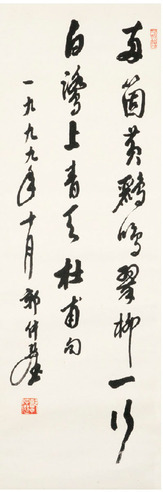 两箇黄鹂鸣翠柳一行
白鹭上青天杜甫句
一九九九年十月郭仲选